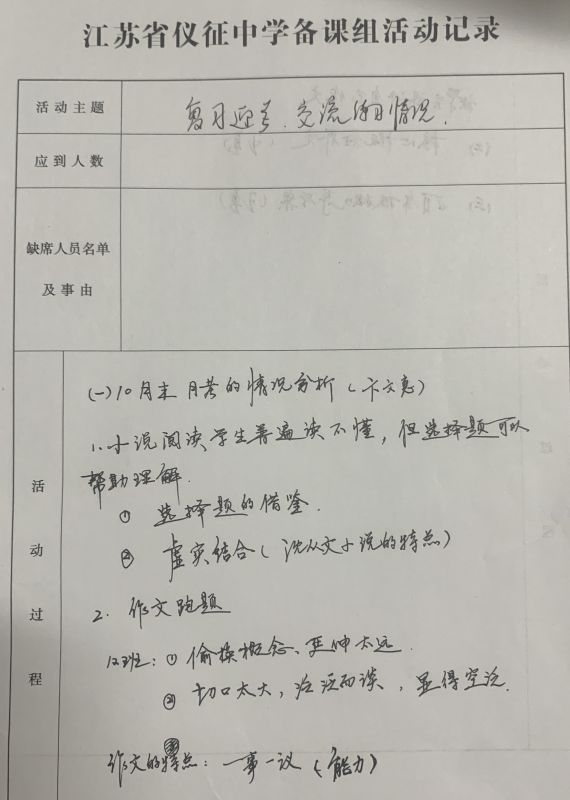 江苏省仪征中学备课组活动记录
活动主题 复习迎考、交流练习情况.
应到人数
缺席人员名单
及事由
活动过程
(一)10月末月考的情况分析(卞文惠)
1.小说阅读学生普遍读不懂,但选择题可以
帮助理解.
① 选择题的借鉴.
② 虚实结合(沈从文小说的特点)
2. 作文跑题
12班:① 偷换概念、延伸太远.
② 切口太大,泛泛而谈,显得空泛.
作文的特点:一事一议(能力)